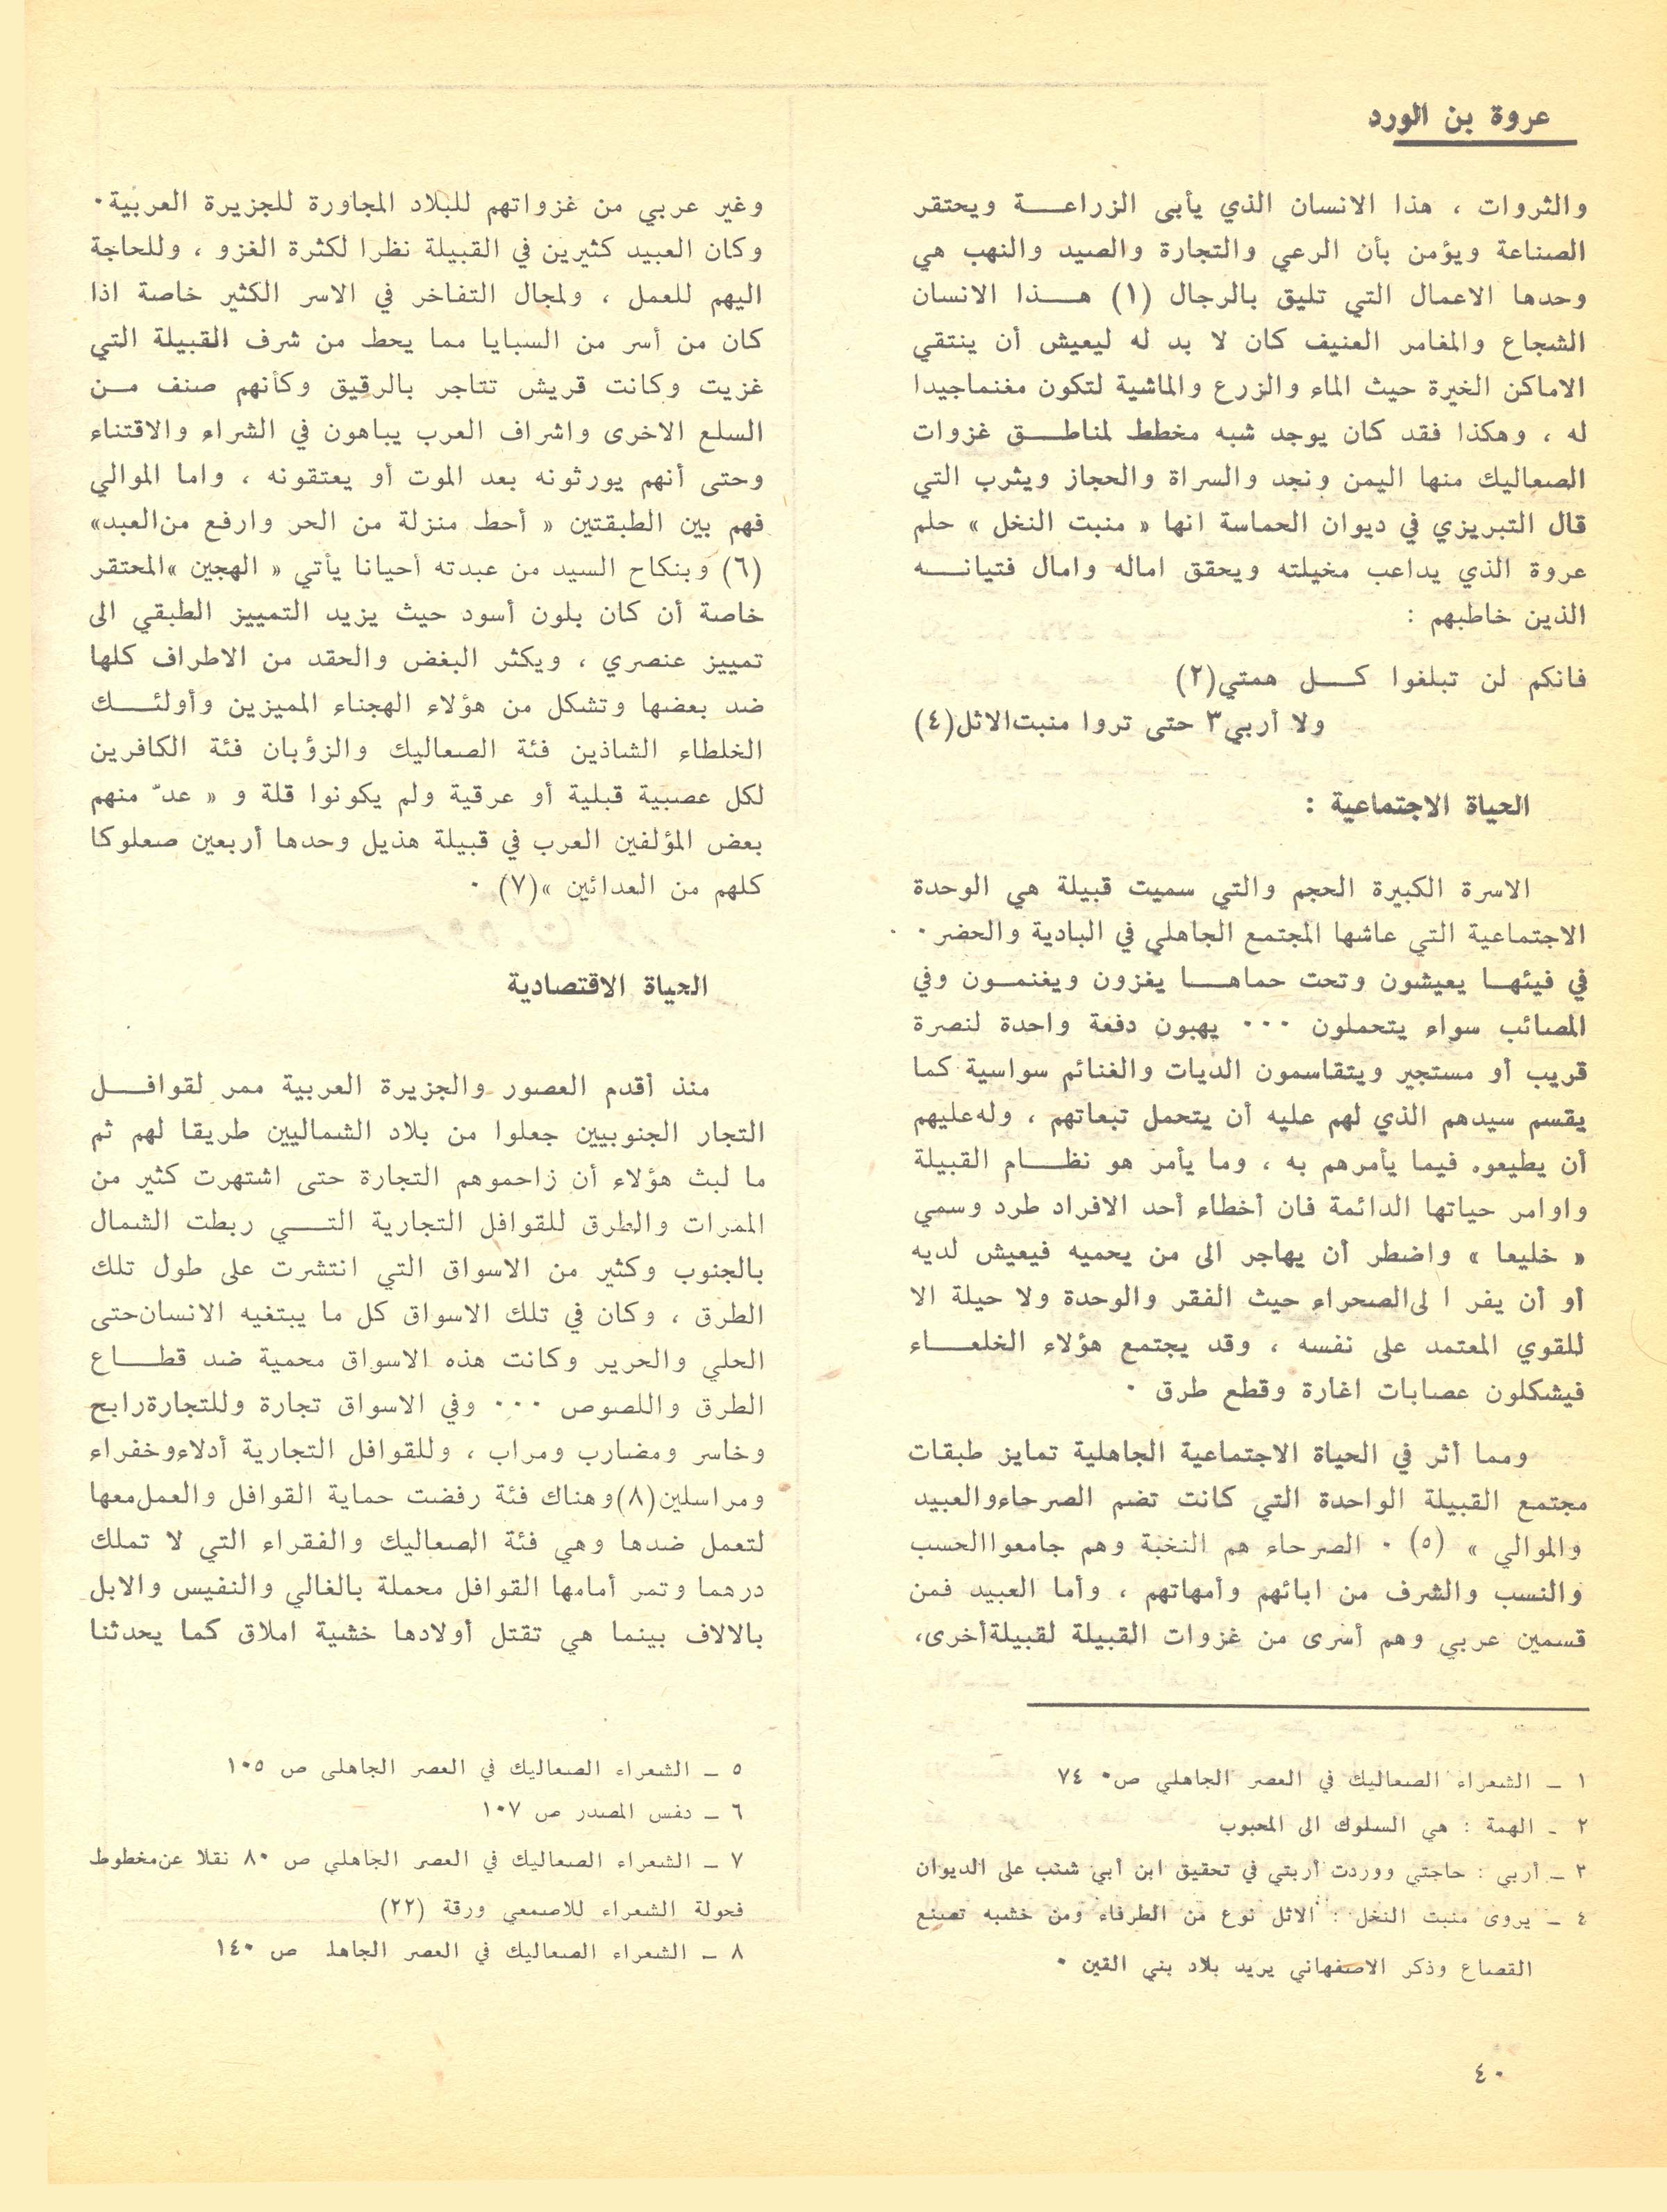 عروة بن الورد
والثروات ، هذا الانسان الذي يأبى الزراعة ويحتقر
الصناعة ويؤمن بأن الرعي والتجارة والصيد والنهب هي
وحدها الاعمال التي تليق بالرجال (١) هذا الانسان
الشجاع والمغامر العنيف كان لا بد له ليعيش أن ينتقي
الاماكن الخيرة حيث الماء والزرع والماشية لتكون مغنماجيدا
له ، وهكذا فقد كان يوجد شبه مخطط لمناطق غزوات
الصعاليك منها اليمن ونجد والسراة والحجاز ويثرب التي
قال التبريزي في ديوان الحماسة انها « منبت النخل » حلم
عروة الذي يداعب مخيلته ويحقق اماله وامال فتيانه
الذين خاطبهم :
فانكم لن تبلغوا كل همتي(٢)
ولا أربي٣ حتى تروا منبت‌الاثل(٤)
الحياة الاجتماعية :
الاسرة الكبيرة الحجم والتي سميت قبيلة هي الوحدة
الاجتماعية التي عاشها المجتمع الجاهلي في البادية والحضر ٠
في فيئها يعيشون وتحت حماها يغزون ويغنمون وفي
المصائب سواء يتحملون ٠٠٠ يهبون دفعة واحدة لنصرة
قريب أو مستجير ويتقاسمون الديات والغنائم سواسية كما
يقسم سيدهم الذي لهم عليه أن يتحمل تبعاتهم ، وله‌عليهم
أن يطيعوه فيما يأمرهم به ، وما يأمر هو نظام القبيلة
واوامر حياتها الدائمة فان أخطاء أحد الافراد طرد وسمي
« خليعا » واضطر أن يهاجر الى من يحميه فيعيش لديه
أو أن يفر ا لى‌الصحراء حيث الفقر والوحدة ولا حيلة الا
للقوي المعتمد على نفسه ، وقد يجتمع هؤلاء الخلعاء
فيشكلون عصابات اغارة وقطع طرق ٠
ومما أثر في الحياة الاجتماعية الجاهلية تمايز طبقات
مجتمع القبيلة الواحدة التي كانت تضم الصرحاءوالعبيد
والموالي » (٥) ٠ الصرحاء هم النخبة وهم جامعواالحسب
والنسب والشرف من ابائهم وأمهاتهم ، وأما العبيد فمن
قسمين عربي وهم أسرى من غزوات القبيلة لقبيلةأخرى،
١ ــ الشعراء الصعاليك في العصر الجاهلي ص٠ ٧٤
٢ ـ الهمة : هي السلوك الى المحبوب
٣ ــ أربي : حاجتي ووردت أربتي في تحقيق ابن أبي شنب على الديوان
٤ ــ يروى منبت النخل : الاثل نوع من الطرفاء ومن خشبه تصنع
القصاع وذكر الاصفهاني يريد بلاد بني القين ٠
وغير عربي من غزواتهم للبلاد المجاورة للجزيرة العربية٠
وكان العبيد كثيرين في القبيلة نظرا لكثرة الغزو ، وللحاجة
اليهم للعمل ، ولمجال التفاخر في الاسر الكثير خاصة اذا
كان من أسر من السبايا مما يحط من شرف القبيلة التي
غزيت وكانت قريش تتاجر بالرقيق وكأنهم صنف من
السلع الاخرى واشراف العرب يباهون في الشراء والاقتناء
وحتى أنهم يورثونه بعد الموت أو يعتقونه ، واما الموالي
فهم بين الطبقتين « أحط منزلة من الحر وارفع من‌العبد»
(٦) وبنكاح السيد من عبدته أحيانا يأتي « الهجين »المحتقر
خاصة أن كان بلون أسود حيث يزيد التمييز الطبقي الى
تمييز عنصري ، ويكثر البغض والحقد من الاطراف كلها
ضد بعضها وتشكل من هؤلاء الهجناء المميزين وأولئك
الخلطاء الشاذين فئة الصعاليك والزؤبان فئة الكافرين
لكل عصبية قبلية أو عرقية ولم يكونوا قلة و « عدّ منهم
بعض المؤلفين العرب في قبيلة هذيل وحدها أربعين صعلوكا
كلهم من العدائين »(٧) ٠
الحياة الاقتصادية
منذ أقدم العصور والجزيرة العربية ممر لقوافل
التجار الجنوبيين جعلوا من بلاد الشماليين طريقا لهم ثم
ما لبث هؤلاء أن زاحموهم التجارة حتى اشتهرت كثير من
الممرات والطرق للقوافل التجارية التي ربطت الشمال
بالجنوب وكثير من الاسواق التي انتشرت على طول تلك
الطرق ، وكان في تلك الاسواق كل ما يبتغيه الانسان‌حتى
الحلي والحرير وكانت هذه الاسواق محمية ضد قطاع
الطرق واللصوص ٠٠٠ وفي الاسواق تجارة وللتجارةرابح
وخاسر ومضارب ومراب ، وللقوافل التجارية أدلاءوخفراء
ومراسلين(٨)وهناك فئة رفضت حماية القوافل والعمل‌معها
لتعمل ضدها وهي فئة الصعاليك والفقراء التي لا تملك
درهما وتمر أمامها القوافل محملة بالغالي والنفيس والابل
بالالاف بينما هي تقتل أولادها خشية املاق كما يحدثنا
٥ ــ الشعراء الصعاليك في العصر الجاهلي ص ١٠٥
٦ ــ نفس المصدر ص ١٠٧
٧ ــ الشعراء الصعاليك في العصر الجاهلي ص ٨٠ نقلا عن‌مخطوط
فحولة الشعراء للاصمعي ورقة (٢٢)
٨ ــ الشعراء الصعاليك في العصر الجاهلـ ص ١٤٠
٤٠